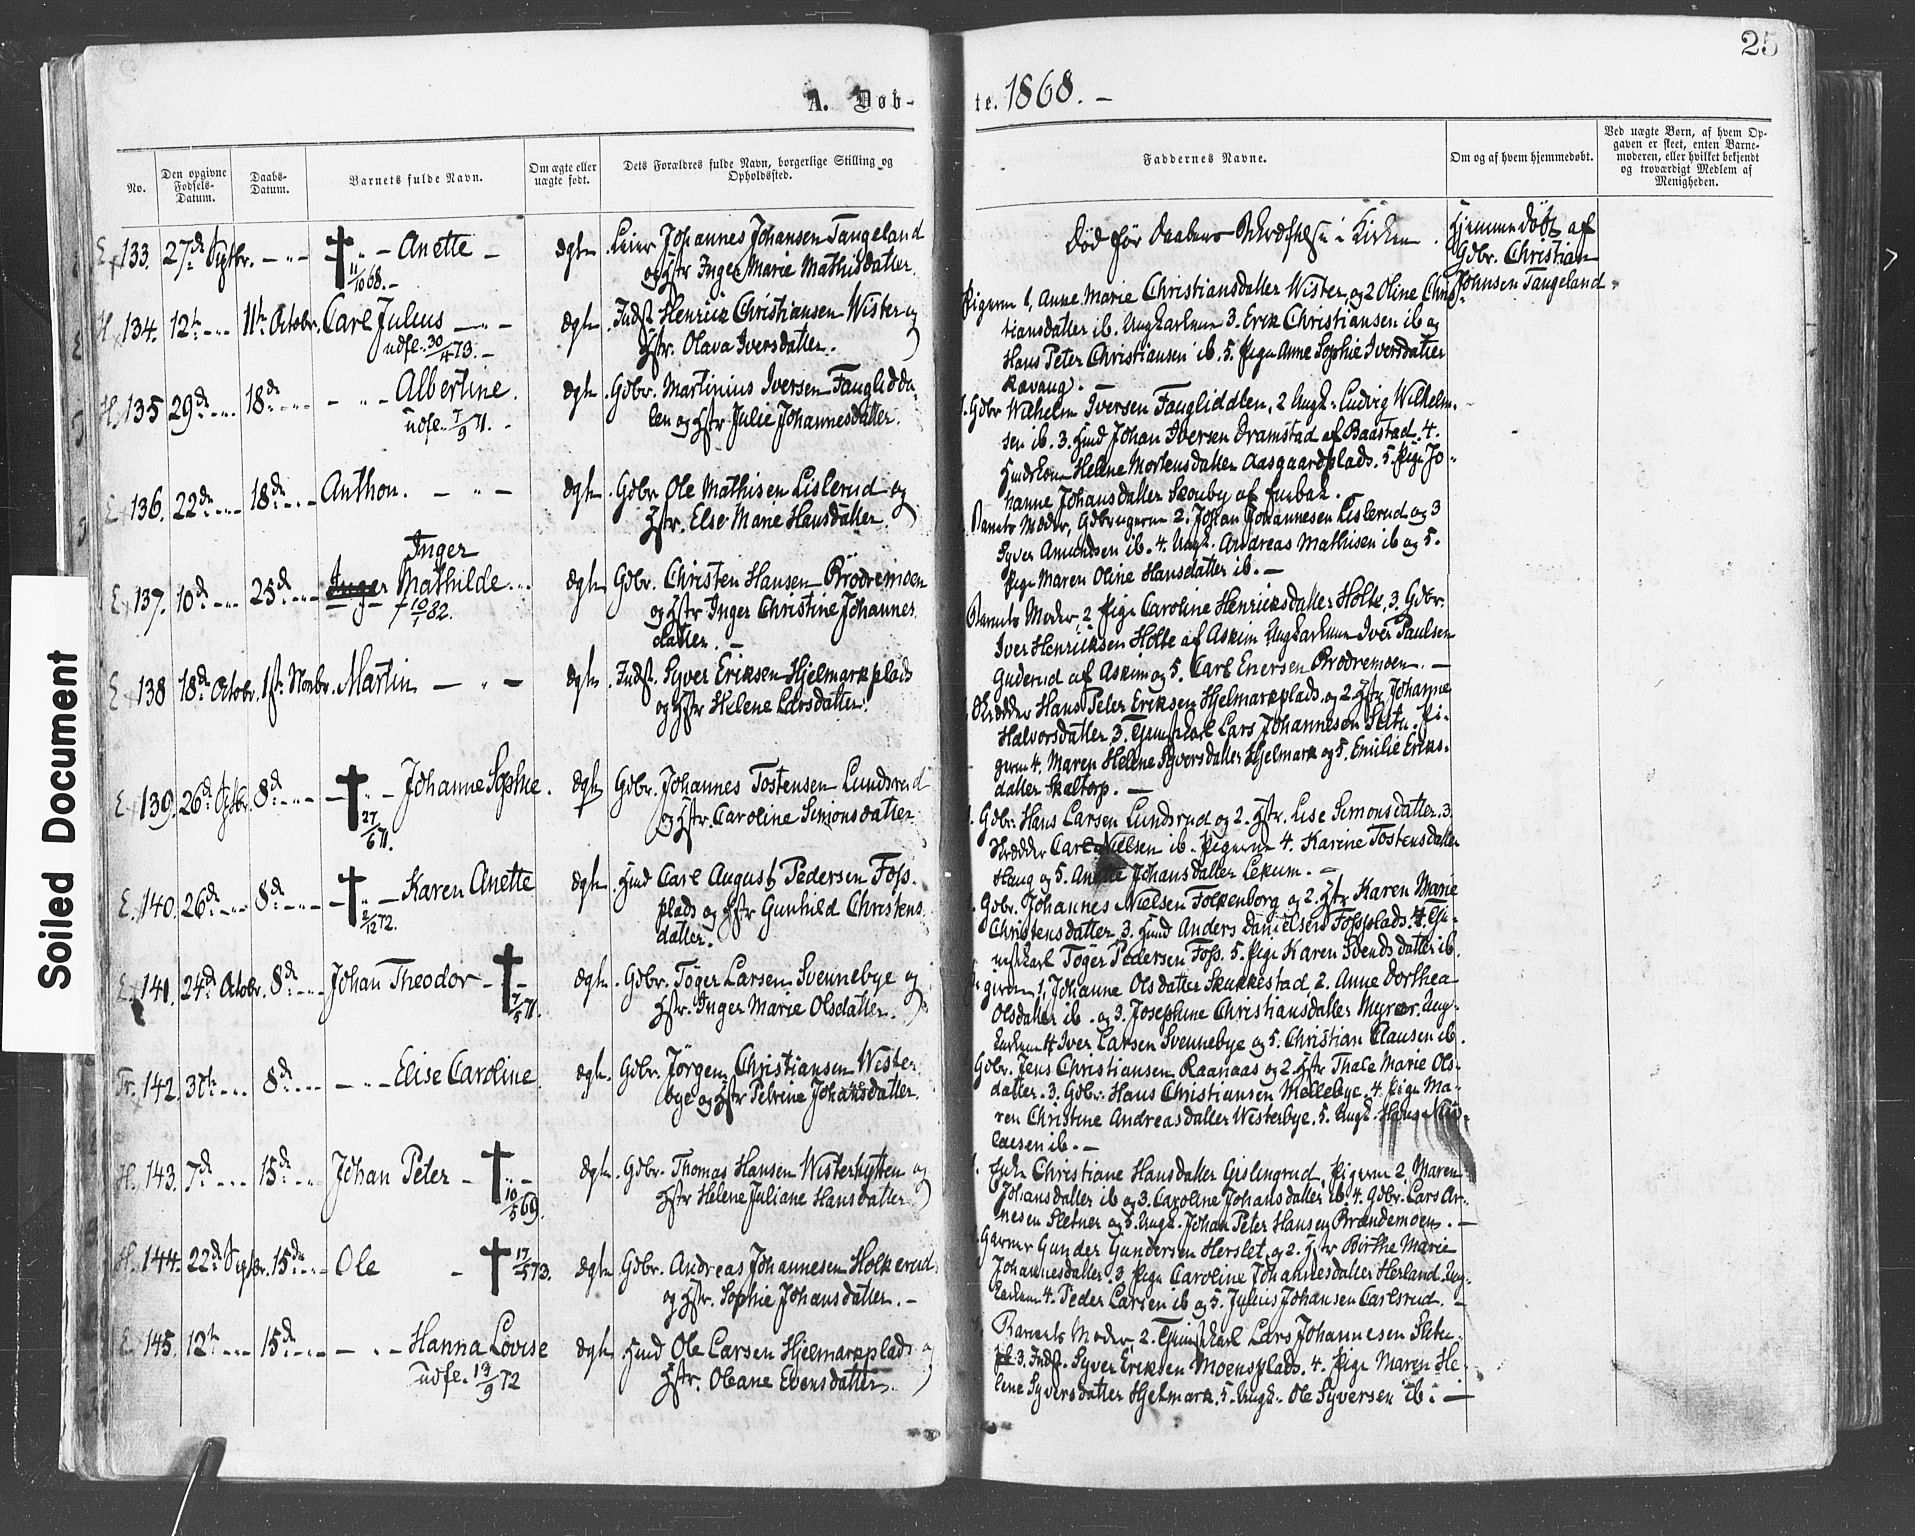 25
A. Døb-
te. 1868. –
No.
Den opgivne Fødsels-Datum.
Daabs-Datum.
Barnets fulde Navn.
Om ægte eller uægte født.
Dets Forældres fulde Navn, borgerlige Stilling og Opholdsted.
Faddernes Navne.
Om og af hvem hjemmedøbt.
Ved uægte Børn, af hvem Op-
gaven er skeet, enten Barne-
moderen, eller hvilket bekjendt
og troværdigt Medlem af
Menigheden.
E. 133. 27de Septbr. – „ – † „ – Anette – ægte. Leier Johannes Johansen Tangeland
11/10 68. – og Hstr Inger Marie Mathisdatter.
Død før Daabens Bekræftelse i Kirken.
Hjemmedøbt af
Gdbr. Christian
Johnsen Tangeland
H. 134. 12te – „ – 11te Octobr. Carl Julius – „ – ægte. Indst Henrik Christiansen Wister og
udfl. 30/4 73. – Hstr. Olava Iversdatter.
Pigerne 1, Anne Marie Christiansdatter Wister, og 2 Oline Chris-
tiansdatter ib. Ungkarlene 3. Erik Christiansen ib og
Hans Peter Christiansen ib. 5. Pige Anne Sophie Iversdatter
H. 135 29de – „ – 18de – „ – – „ – Albertine. ægte. Gdbr. Martinius Iversen Faugliddø-
udfl. 7/9 71. – len og Hstr Julie Johannesdatter.
Gdbr Wilhelm Iversen Faugliddlen, 2 Ungk. Ludvig Wilhelm-
sen ib. 3. Hmd Johan Iversen Dramstad af Baastad. 4.
Hmdskone Helene Mortensdatter Aasgaardplads. 5. Pige Jo-
hanne Johansdatter Skouby af
E 136. 22de – „ – 18de – „ – Anthon. – „ – ægte. Gdbr Ole Mathisen Lislerud og
Hstr. Else Marie Hansdatter.
Barnets Moder, Gdbrugerne 2. Johan Johannesen Lislerud og 3
Syver Amundsen ib. 4. Ungk. Andreas Mathisen ib og 5.
Pige Maren Oline Hansdatter ib. –
E. 137. 10de – „ – 25de – „ – Inger
Mathilde „ ægte Gdbr. Christen Hansen Brødremoen
† 10/1 82. og Hstr Inger Christine Johannes
datter. –
Barnets Moder, 2 Pige Caroline Henriksdatter Holte, 3. Gdbr.
Iver Henriksen Holte af Askim Ungkarlene Iver Paulsen
Guderud af Askim og 5. Carl Enersen Brødremoen. –
E 138 18de Octobr. 1ste Novbr. Martin – „ – ægte. Indst. Syver Eriksen Hjelmarkplads
og Hstr Helene Larsdatter.
Skrædder Hans Peter Eriksen Hjelmarkplads og 2 Hstr Johanne
Halvorsdatter 3. Tjenstkarl Lars Johannesen Sletu. Pi-
gerne 4. Maren Helene Syversdatter Hjelmark og 5. Emilie Eriks-
datter Skaltorp. –
E. 139. 26de Septbr. 8de – „ – – † „ – Johanne Sophie. ægte Gdbr. Johannes Tostensen Lundsrud
27/6 71. og Hstr. Caroline Simonsdatter.
Gdbr. Hans Larsen Lundsrud og 2. Hstr. Lise Simonsdatter. 3.
Skrædder Carl Nielsen ib. Pigerne 4. Karine Tostensdatter
Haug og 5. Johansdatter Lekum. –
E. 140. 26de – „ – 8de – „ – – † „ – Karen Anette ægte. Hmd Carl August Pedersen Foss-
2/12 72. plads og Hstr Gunhild Christens
datter.
Gdbr. Johannes Nielsen Folkenborg og 2. Hstr Karen Marie
Christensdatter 3. Hmd Anders Danielsen Fossplads. 4. Tje-
nestkarl Tøger Pedersen Foss. 5. Pige Karen Svendsdatter ib.
E. 141. 24de Octobr. 8de – „ – Johan Theodor – † – ægte. Gdbr. Tøger Larsen Svennebye og
7/5 71. Hstr. Inger Marie Olsdatter.
Pigerne 1, Johanne Olsdatter Skukkestad, 2. Anne Dorthea
Olsdatter ib. og 3. Josephine Christiansdatter Myrer. Ung-
karlene 4 Iver Larsen Svennebye og 5. Christian Clausen ib.
Tr. 142. 30te – „ – 8de – „ – – „ – Elise Caroline ægte. Gdbr. Jørgen Christiansen Wester-
bye og Hstr Petrine Johansdatter.
Gdbr. Jens Christiansen Raanaas og 2. Hstr Thale Marie Ols-
datter. 3. Gdbr. Hans Christiansen Møllebye. 4. Pige Ma-
ren Christine Andreasdatter Westerbye. 5. Ungk. Hans
laesen ib. –
H. 143. 7de – „ – 15de – „ – Johan Peter – † „ – ægte. Gdbr. Thomas Hansen Wisterhytten og
10/5 69. Hstr Helene Juliane Hansdatter.
Enke Christiane Hansdatter Gislingrud, Pigerne 2. Maren
Johansdatter ib og 3. Caroline Johansdatter ib. 4. Gdbr. Lars Ar-
nesen Sletner og 5. Ungk. Johan Peter Hansen Brandemoen. –
H. 144. 22de Septbr. 15de – „ – Ole – † 17/5 73. ægte Gdbr. Andreas Johannesen Holkerud
og Hstr. Sophie Johansdatter. –
Garver Gunder Gundersen Herslet, og 2. Hstr Birthe Marie
Johannesdatter. 3 Pige Caroline Johannesdatter Herland. Ung-
karlene 4. Peder Larsen ib og 5. Julius Johansen Carlsrud. –
E. 145. 12te – „ – 15de – „ – – „ – Hanna Lovise ægte. Hmd Ole Larsen Hjelmarkplads og
udfl. 13/9 72 Hstr. Oleane Evensdatter.
Barnets Moder 2. Tjenstkarl Lars Johannesen Sletu.
3. Indst. Syver Eriksen Moensplads. 4. Pige Maren He-
lene Syversdatter Hjelmark. 5. Ungk. Ole Syversen ib. –
Soiled Document